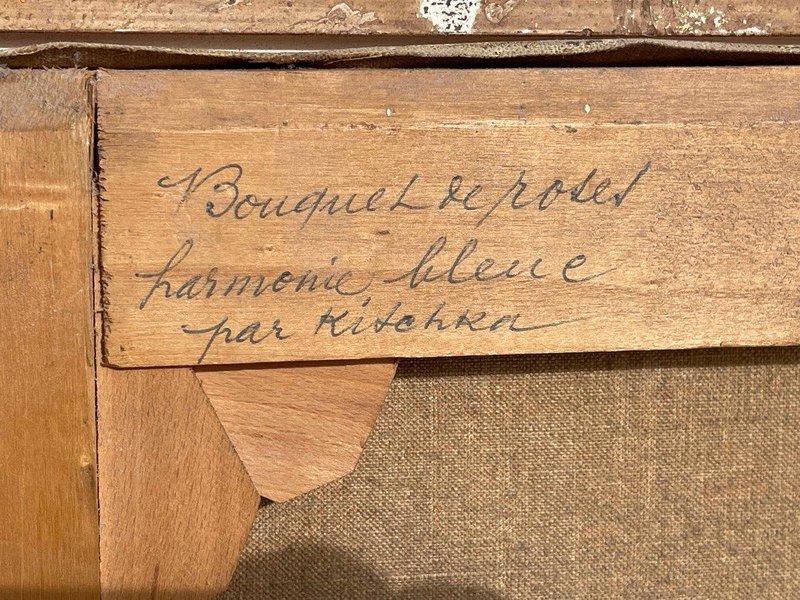 Bouquet de roses
harmonie bleue
par Kitchka